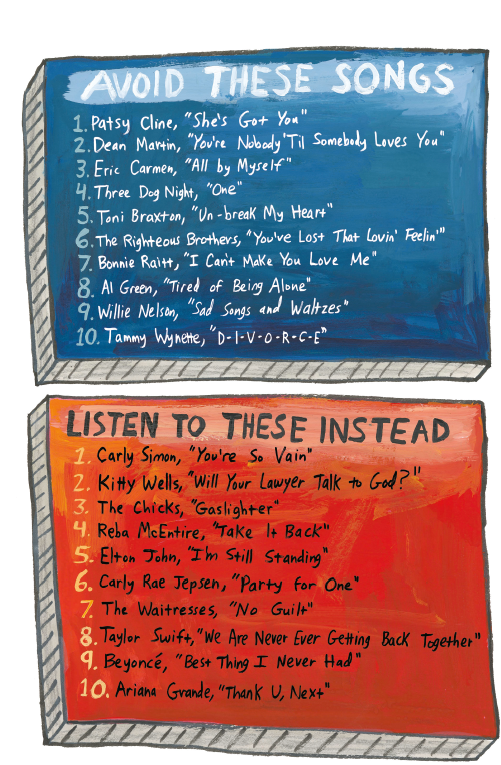 AVOID THESE SONGS
1. Patsy Cline, "She's Got You"
2. Dean Martin, "You're Nobody 'Til Somebody Loves You"
3. Eric Carmen, "All by Myself"
4. Three Dog Night, "One"
5. Toni Braxton, "Un-break My Heart"
6. The Righteous Brothers, "You've Lost That Lovin' Feelin'"
7. Bonnie Raitt, "I Can't Make You Love Me"
8. Al Green, "Tired of Being Alone"
9. Willie Nelson, "Sad Songs and Waltzes"
10. Tammy Wynette, "D-I-V-O-R-C-E"
LISTEN TO THESE INSTEAD
1. Carly Simon, "You're So Vain"
2. Kitty Wells, "Will Your Lawyer Talk to God?"
3. The Chicks, "Gaslighter"
4. Reba McEntire, "Take It Back"
5. Elton John, "I'm Still Standing"
6. Carly Rae Jepsen, "Party for One"
7. The Waitresses, "No Guilt"
8. Taylor Swift, "We Are Never Ever Getting Back Together"
9. Beyoncé, "Best Thing I Never Had"
10. Ariana Grande, "Thank U, Next"